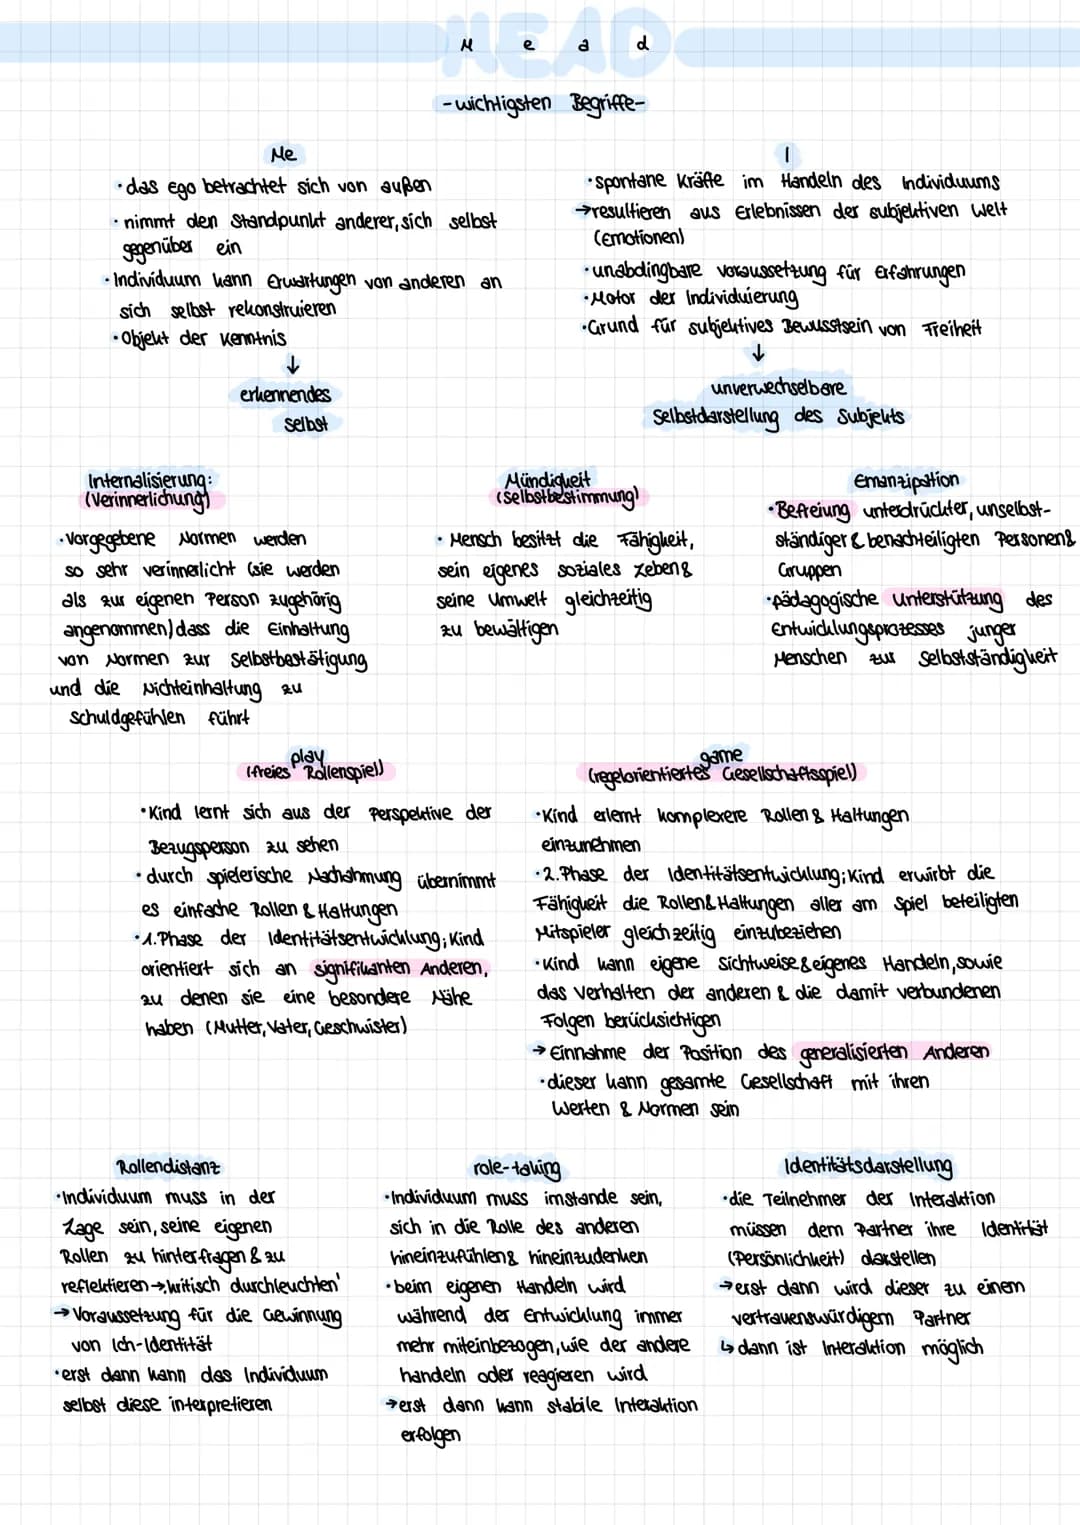 MEAD
M e a d
-wichtigsten Begriffe-
Me
•das Ego betrachtet sich von außen
•nimmt den Standpunkt anderer, sich selbst
gegenüber ein
•Individuum kann Erwartungen von anderen an
sich selbst rekonstruieren
•Objekt der Kenntnis
↓
erkennendes
Selbst
I
•spontane Kräfte im Handeln des Individuums
→resultieren aus Erlebnissen der subjektiven Welt
(Emotionen)
•unabdingbare Voraussetzung für Erfahrungen
•Motor der Individuierung
•Grund für subjektives Bewusstsein von Freiheit
↓
unverwechselbare
Selbstdarstellung des Subjekts
Internalisierung:
(Verinnerlichung)
•Vorgegebene Normen werden
so sehr verinnerlicht (sie werden
als zur eigenen Person zugehörig
angenommen) dass die Einhaltung
von Normen zur Selbstbestätigung
und die Nichteinhaltung zu
Schuldgefühlen führt
Mündigkeit
(Selbstbestimmung)
•Mensch besitzt die Fähigkeit,
sein eigenes soziales Leben &
seine Umwelt gleichzeitig
zu bewältigen
Emanzipation
•Befreiung unterdrückter, unselbst-
ständiger & benachteiligten Personen &
Gruppen
•pädagogische Unterstützung des
Entwicklungsprozesses junger
Menschen zur Selbstständigkeit
play
(freies Rollenspiel)
•Kind lernt sich aus der Perspektive der
Bezugsperson zu sehen
•durch spielerische Nachahmung übernimmt
es einfache Rollen & Haltungen
•1.Phase der Identitätsentwicklung; Kind
orientiert sich an signifikanten Anderen,
zu denen sie eine besondere Nähe
haben (Mutter, Vater, Geschwister)
game
(regelorientiertes Gesellschaftsspiel)
•Kind erlernt komplexere Rollen & Haltungen
einzunehmen
•2.Phase der Identitätsentwicklung; Kind erwirbt die
Fähigkeit die Rollen & Haltungen aller am Spiel beteiligten
Mitspieler gleichzeitig einzubeziehen
•Kind kann eigene Sichtweise & eigenes Handeln, sowie
das Verhalten der anderen & die damit verbundenen
Folgen berücksichtigen
→Einnahme der Position des generalisierten Anderen
•dieser kann gesamte Gesellschaft mit ihren
Werten & Normen sein
Rollendistanz
•Individuum muss in der
Lage sein, seine eigenen
Rollen zu hinterfragen & zu
reflektieren→,kritisch durchleuchten'
→Voraussetzung für die Gewinnung
von Ich-Identität
•erst dann kann das Individuum
selbst diese interpretieren
role-taking
•Individuum muss imstande sein,
sich in die Rolle des anderen
hineinzufühlen & hineinzudenken
•beim eigenen Handeln wird
während der Entwicklung immer
mehr miteinbezogen, wie der andere
handeln oder reagieren wird
→erst dann kann stabile Interaktion
erfolgen
Identitätsdarstellung
•die Teilnehmer der Interaktion
müssen dem Partner ihre Identität
(Persönlichkeit) darstellen
→erst dann wird dieser zu einem
vertrauenswürdigem Partner
↳dann ist Interaktion möglich